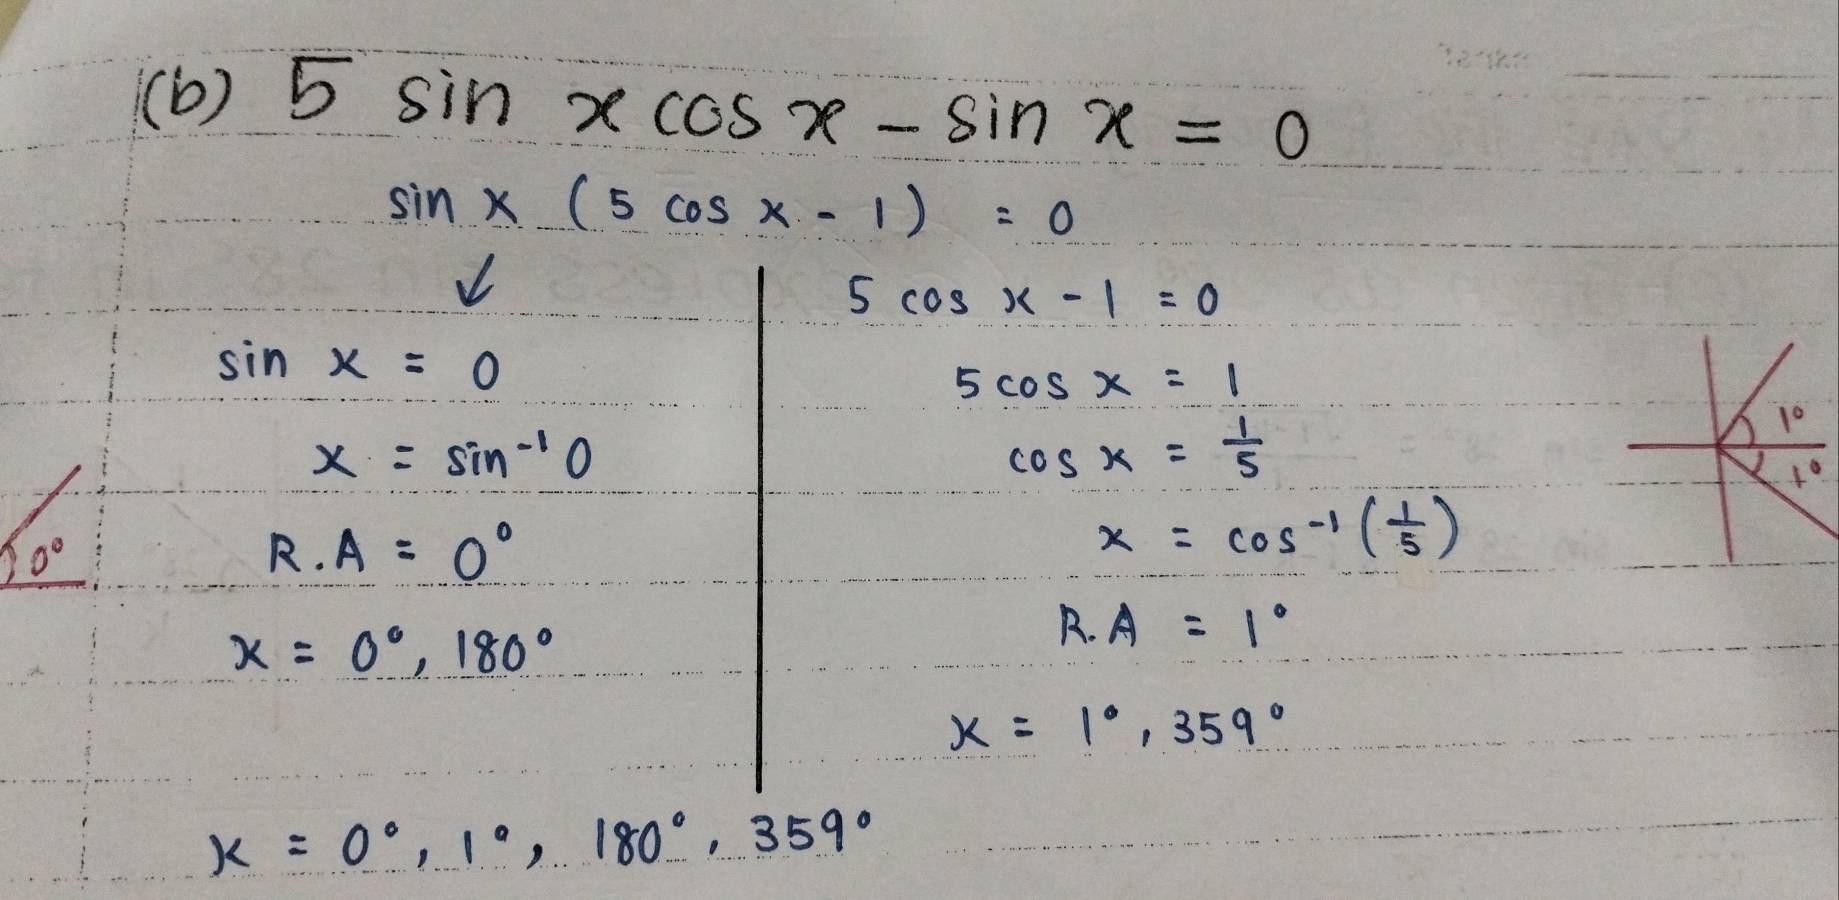 (b) 5 sin x cos x - sin x = 0
sin x (5 cos x - 1) = 0
sin x = 0
x = sin⁻¹ 0
R.A = 0°
x = 0°, 180°
0°
5 cos x - 1 = 0
5 cos x = 1
cos x = 1/5
x = cos⁻¹ (1/5)
R.A = 1°
x = 1°, 359°
1°
1°
x = 0°, 1°, 180°, 359°